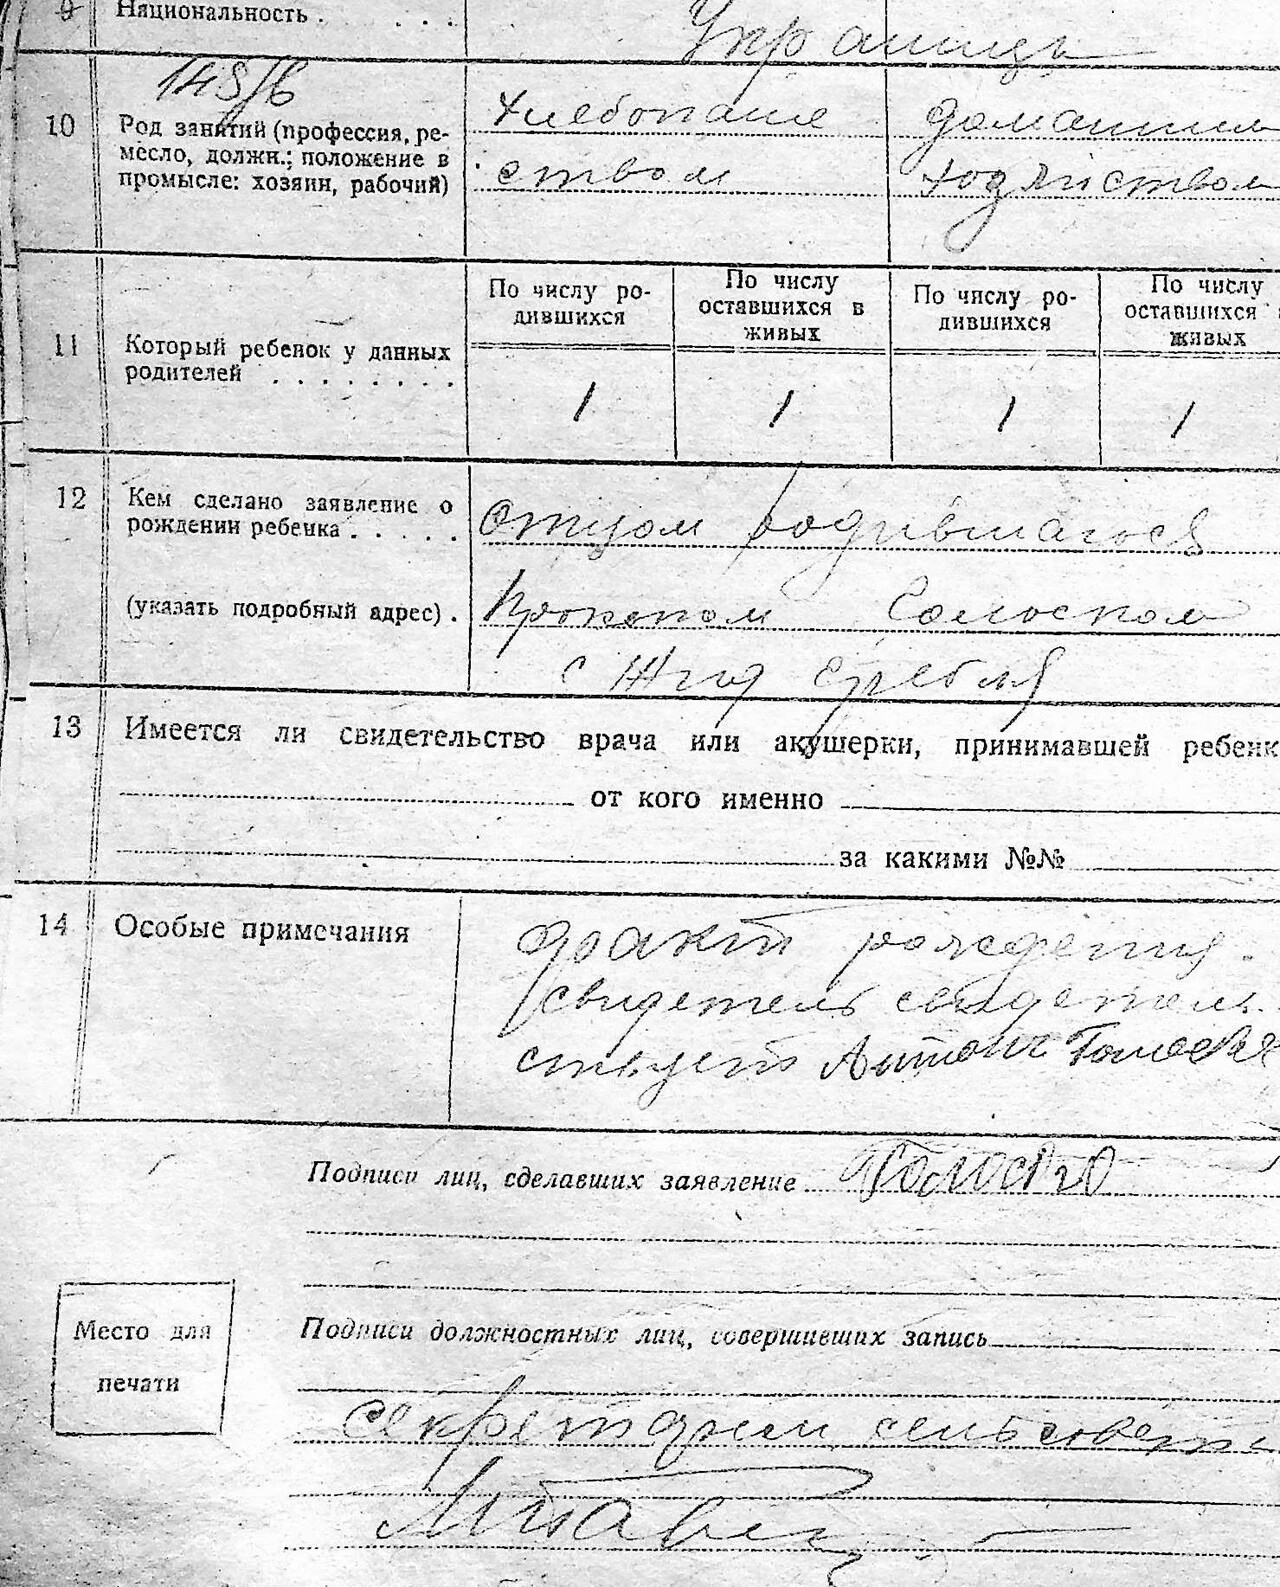 9 Национальность . . . .
Украинцы
148/6
10 Род занятий (профессия, ре-
месло, должн.; положение в
промысле: хозяин, рабочий)
хлебопаше
ством
домашним
хозяйством
11 Который ребенок у данных
родителей . . . . . . . .
По числу ро-
дившихся
По числу
оставшихся в
живых
По числу ро-
дившихся
По числу
оставшихся в
живых
1 1 1 1
12 Кем сделано заявление о
рождении ребенка . . . . .
(указать подробный адрес) .
Отцом родившагося
Прокопом
с
13 Имеется ли свидетельство врача или акушерки, принимавшей ребенк
от кого именно
за какими №№
14 Особые примечания
факт рождения
свидетель свидетель
ствует Антон
Подписи лиц, сделавших заявление
Подписи должностных лиц, совершивших запись
Место для
печати
секретарь сельсовета